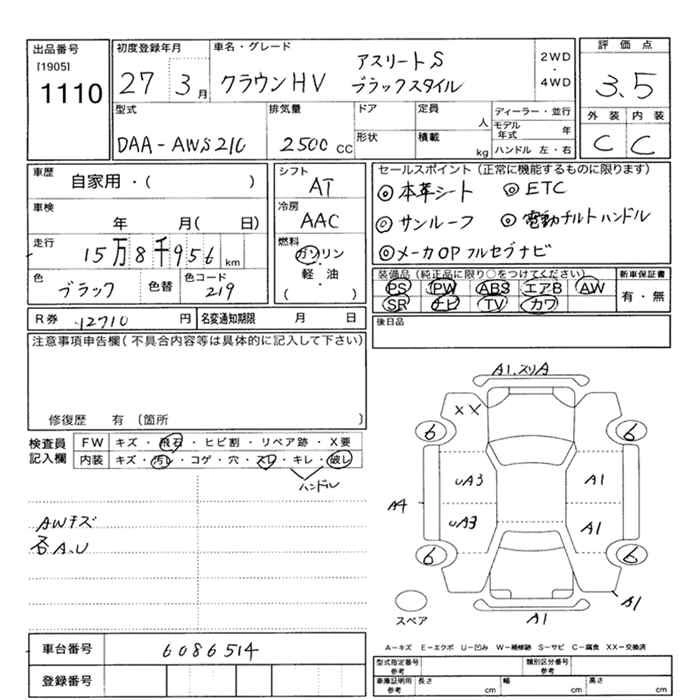 出品番号
[1905]
1110
初度登録年月
27 3月
車名・グレード
クラウンHV アスリートS
ブラックスタイル
2WD
・
4WD
評価点
3.5
外装 内装
C C
型式
DAA-AWS210
排気量
2500 CC
ドア
形状
定員
人
積載
kg
ディーラー・並行
モデル年式 年
ハンドル 左・右
車歴
自家用・( )
車検
年 月( 日)
走行
15万8千956 km
色
ブラック
色替
色コード
219
シフト
AT
冷房
AAC
燃料
ガソリン
・
軽・油
( )
セールスポイント(正常に機能するものに限ります)
◎本革シート ◎ETC
◎サンルーフ ◎電動チルトハンドル
◎メーカOPフルセグナビ
装備品(純正品に限り○をつけてください)
PS PW ABS エアB AW
SR ナビ TV カワ
新車保証書
有・無
R券 12710 円
名変通知期限 月 日
後日品
注意事項申告欄(不具合内容等は具体的に記入して下さい)
修復歴 有 〔箇所 〕
検査員
記入欄
FW キズ・飛石・ヒビ割・リペア跡・X要
内装 キズ・汚レ・コゲ・穴・スレ・キレ・破レ
ハンドル
AWキズ
各A.U
A1.スリA
XX
6
6
UA3
A1
A4
UA3
A1
6
6
A1
A1
スペア
A―キズ E―エクボ U―凹み W―補修跡 S―サビ C―腐食 XX―交換済
車台番号 6086514
登録番号
型式指定番号
参考
類別区分番号
参考
車庫証明用
参考
長さ cm
幅 cm
高さ cm